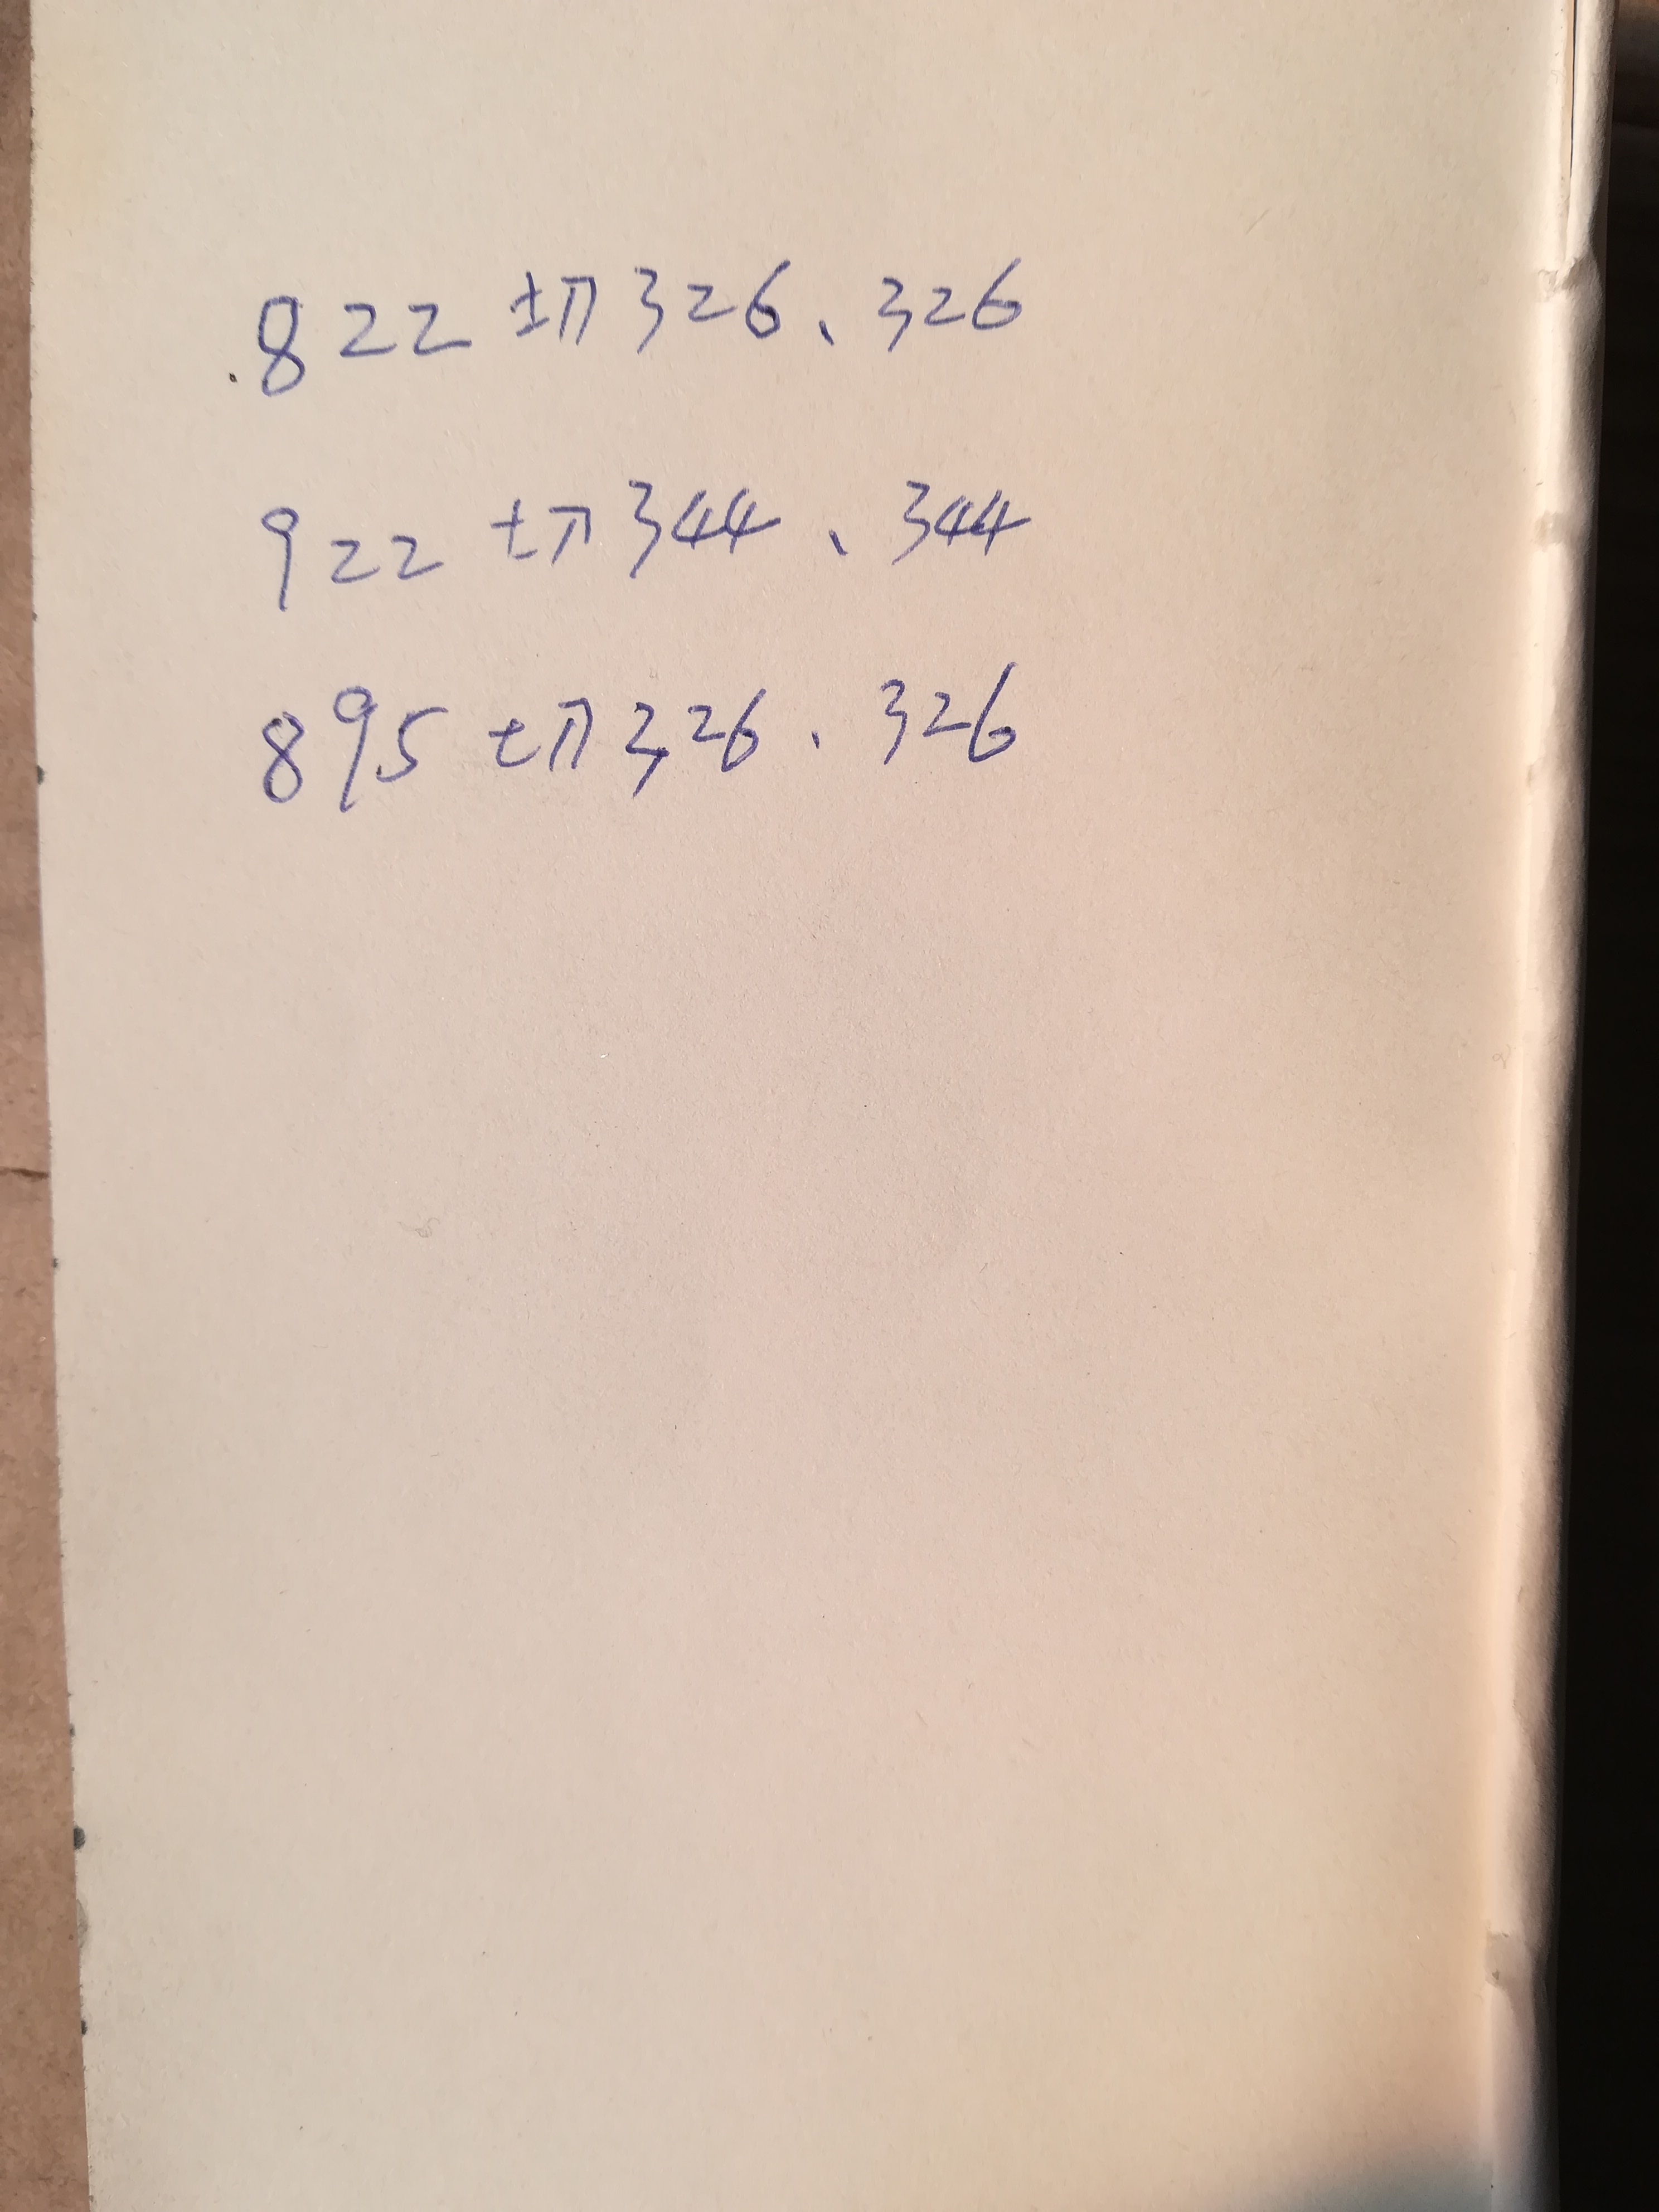 822切326、326
922切344、344
895切326、326